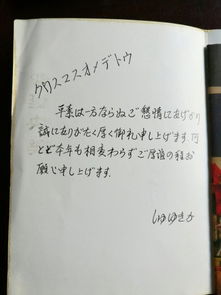 クリスマスオメデトウ
平素は一方ならぬご懇情にあずかり
誠にありがたく厚く御礼申し上げます。何
とぞ本年も相変わらずご厚誼の程お
願い申し上げます。